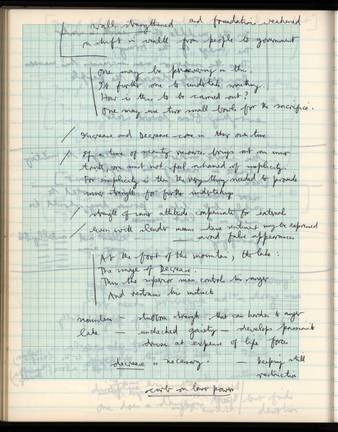 walls strengthened and foundations weakened
a shift in wealth from people to government
one may be persevering in this
It furthers one to undertake something
How is this to be carried out?
One may use two small bowls for the sacrifice.
/ Increase and Decrease come in their own time
/ If a time of scanty resources brings out an inner
truth, one must not feel ashamed of simplicity
For simplicity is then the very thing needed to provide
inner strength for further undertakings
/ strength of inner attitude compensates for external
/ even with slender means the sentiment may be expressed
— avoid false appearances
At the foot of the mountain, the lake:
The image of Decrease.
Thus the superior man controls his anger
And restrains his instincts
mountain – stubborn strength that can harden to anger
lake — unchecked gaiety — develops passionate
drives at expense of life force
decrease is necessary — keeping still
restriction
curb on lower powers